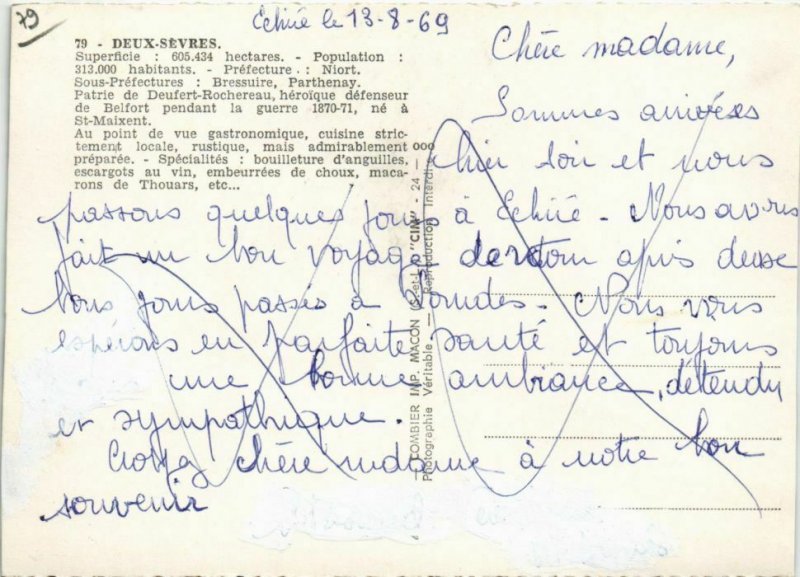 79
Echiré le 13-8-69
79 - DEUX-SÈVRES.
Superficie : 605.434 hectares. - Population :
313.000 habitants. - Préfecture : Niort.
Sous-Préfectures : Bressuire, Parthenay.
Patrie de Deufert-Rochereau, héroïque défenseur
de Belfort pendant la guerre 1870-71, né à
St-Maixent.
Au point de vue gastronomique, cuisine stric-
tement locale, rustique, mais admirablement
préparée. - Spécialités : bouilleture d'anguilles,
escargots au vin, embeurrées de choux, maca-
rons de Thouars, etc...
COMBIER IMP. MACON (S.-et-L.) "CIM" - 24 - 000
Photographie Véritable — Reproduction Interdite
Chère madame,
Sommes arrivés
hier soir et nous
passons quelques jours à Echiré - Nous avons
fait un bon voyage de retour après deux
bons jours passés à - Nous vous
espérons en parfaite santé et toujours
une bonne ambiance, détendu
et sympathique.
Croyez chère madame à notre bon
souvenir